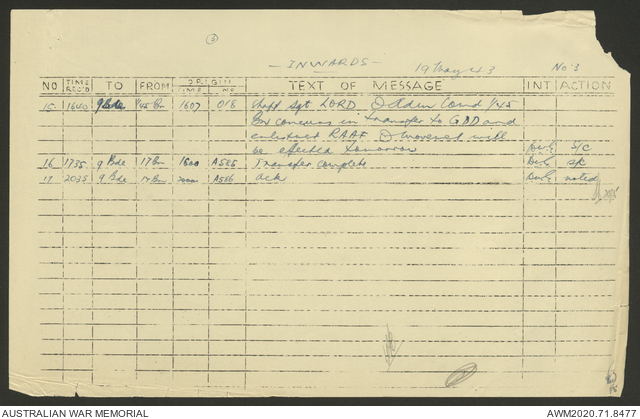 3
- INWARDS -
19 May 43
No. 3
NO TIME REC'D TO FROM ORIGIN TIME NO TEXT OF MESSAGE INT ACTION
15 1640 9 Bde 45 Bn 1607 018 Staff Sgt LORD
Bn concurs in transfer to GDD and
RAAF will
be effected tomorrow S/C
16 1735 9 Bde 17 Bn 1600 A585 Transfer complete
17 2035 9 Bde 17 Bn 2000 A586 ack noted
AUSTRALIAN WAR MEMORIAL
AWM2020.71.8477